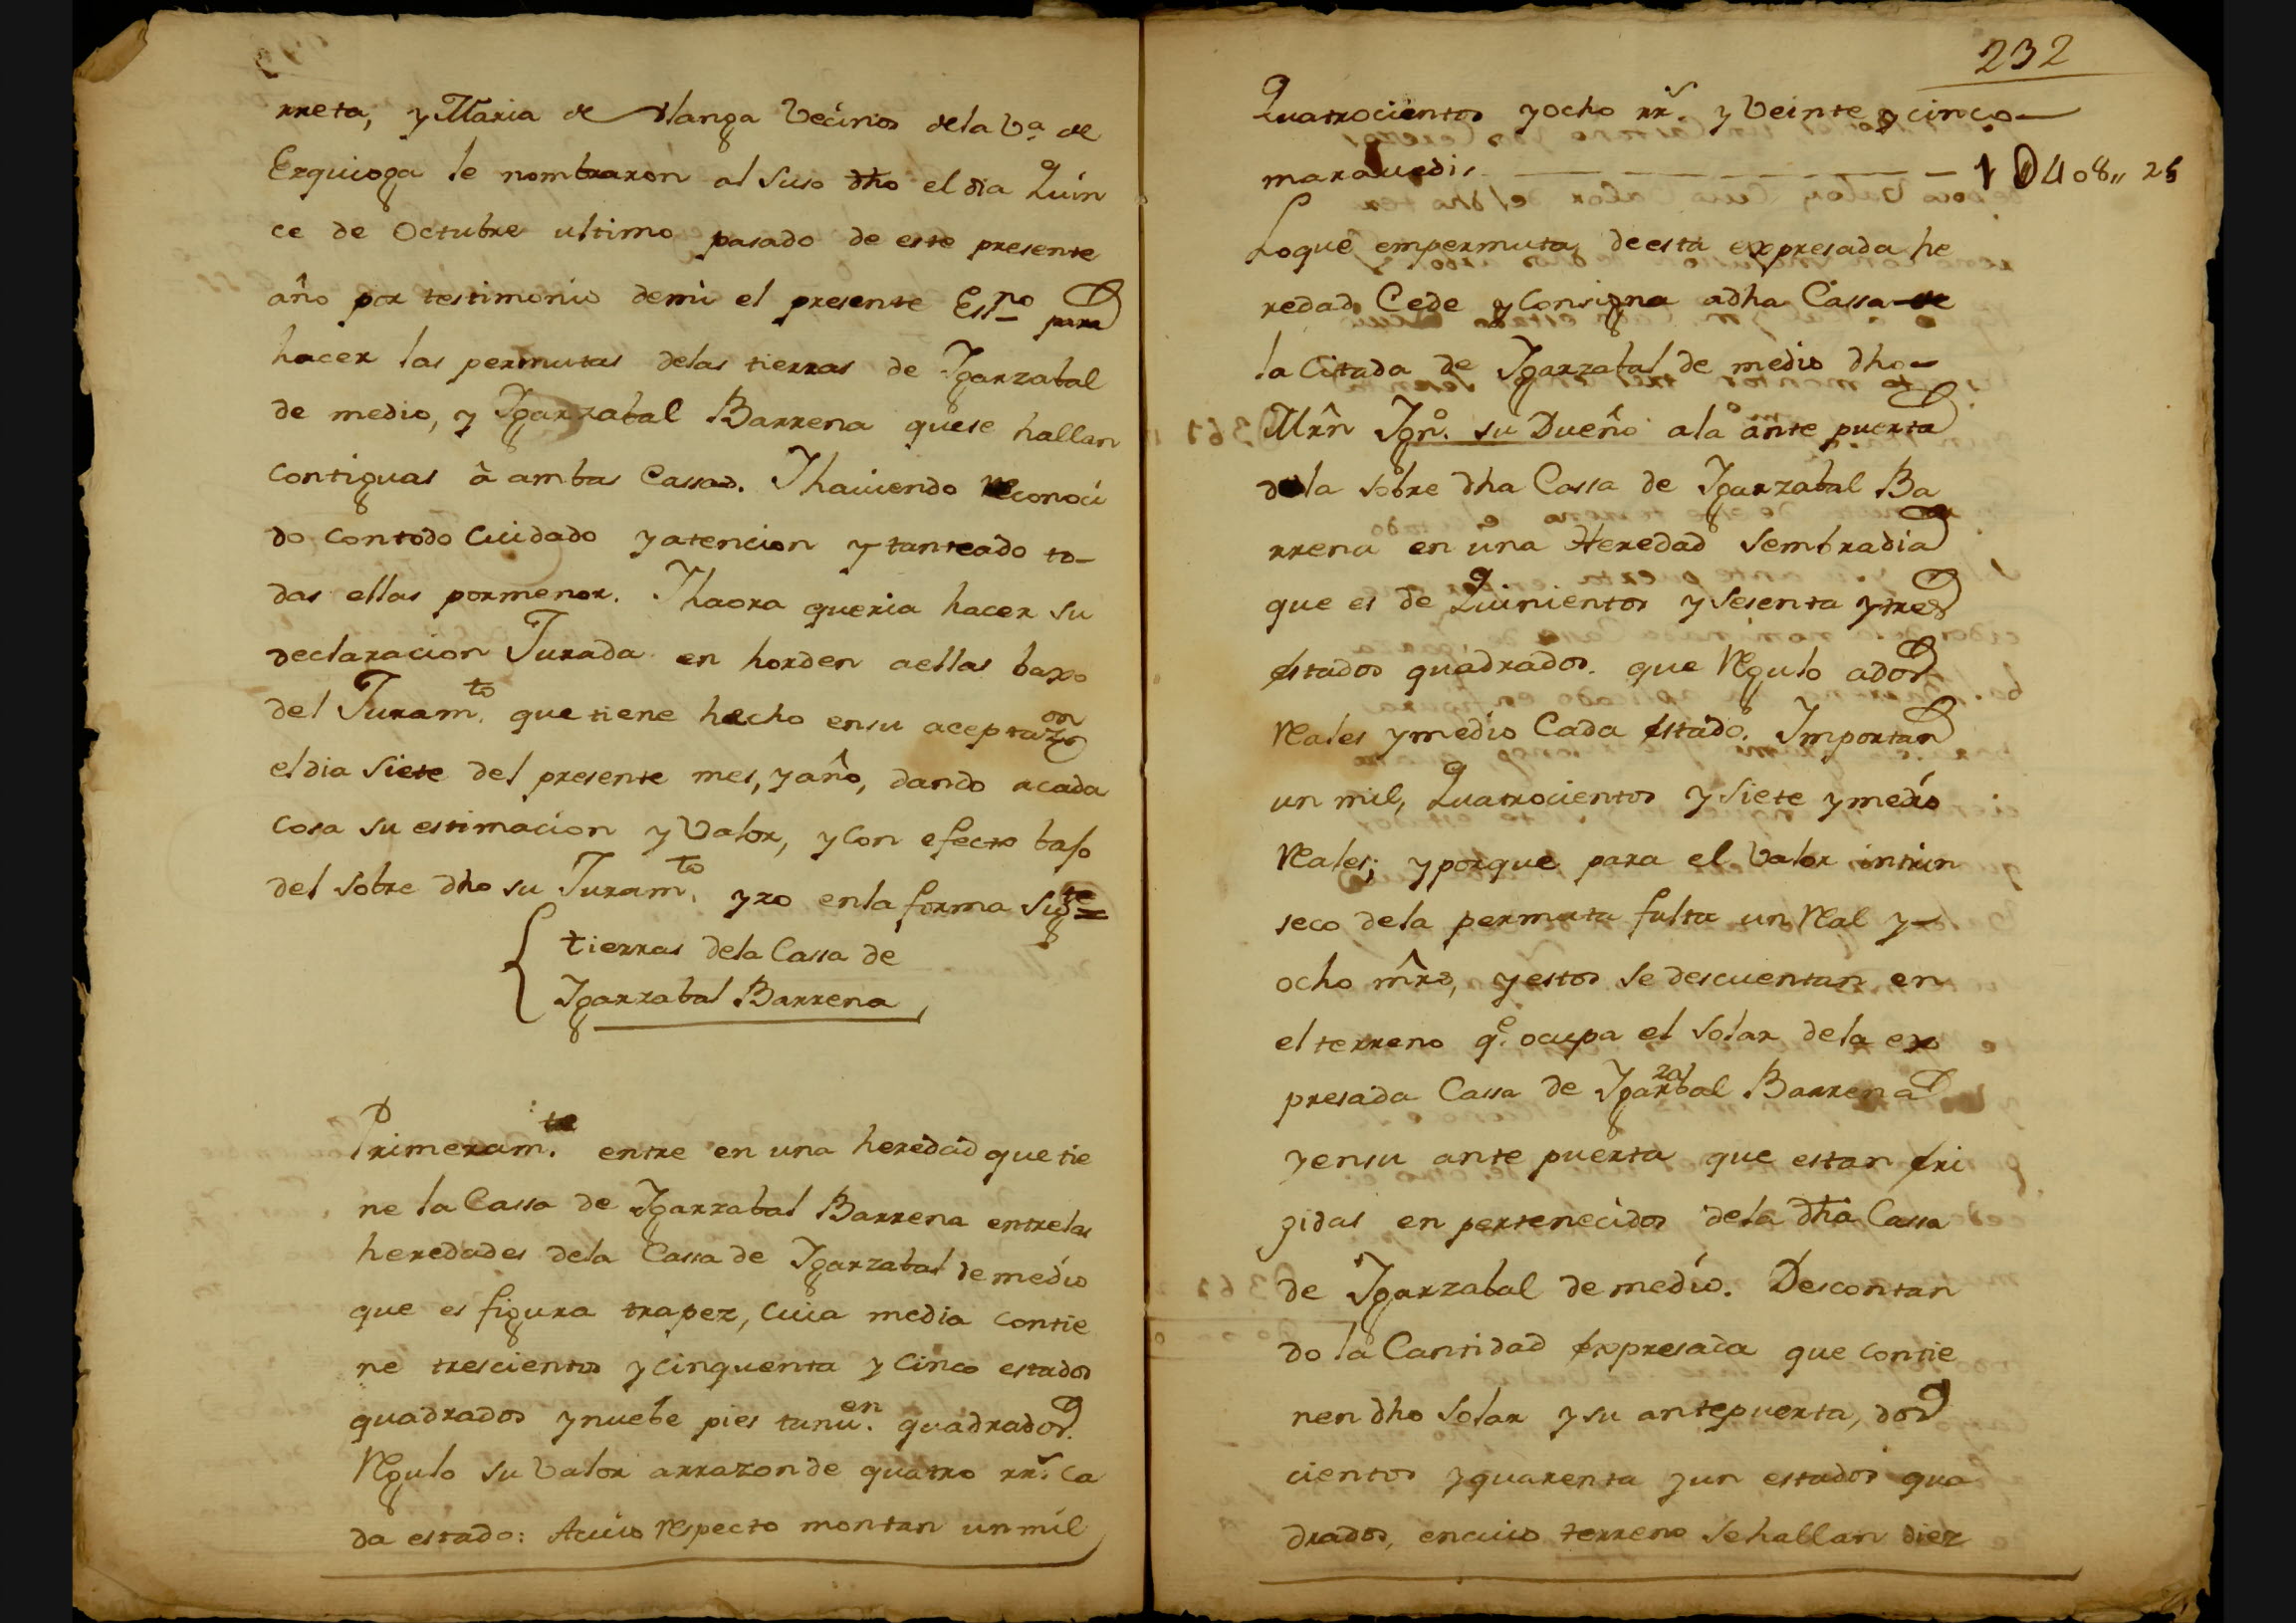 rreta, y Maria de Alanga Vecinos dela Va. de
Ezquioga le nombraron al Suso dho el dia Quin
ce de Octubre ultimo pasado de este presente
año por testimonio demi el presente Essno para
hacer las permutas delas tierras de Ygarzabal
de medio, y Ygarzabal Barrena quese hallan
contiguas â ambas Cassas. Y haviendo reconoci
do contodo Cuidado y atencion y tanteado to-
das ellas pormenor. Y haora queria hacer su
declaracion Jurada en horden aellas baxo
del Juramto. que tiene hecho ensu aceptazon
eldia Siete del presente mes, y año, dando acada
cosa su estimacion y Valor, y con efecto baso
del sobre dho su Juramto. yzo enla forma Sigte=
tierras dela Cassa de
Ygarzabal Barrena,
Primeramte. entre en una heredad que tie
ne la Cassa de Ygarzabal Barrena entrelas
heredades dela Cassa de Ygarzabal de medio
que es figura trapez, Cuia media contie
ne trescientos y cinquenta y Cinco estados
quadrados y nuebe pies tanuen. quadrados.
Regulo su Valor arrazon de quatro rrs. ca
da estado: Acuio respecto montan un mil
232
Quatrocientos y ocho rrs. y Veinte y cinco
maravedis 1 D 408,, 25
Loque empermuta deesta expresada he
redad Cede y Consigna adha Cassa de
la Citada de Ygarzabal de medio dho
Mrñ Ygno. su Dueño ala ante puerta
dela sobre dha Cassa de Ygarzabal Ba
rrena en una Heredad Sembradia
que es de Quinientos y Sesenta y tres
estados quadrados. que Regulo ados
Reales y medio Cada estado. Importan
un mil, Quatrocientos y Siete y medio
Reales; y porque para el Valor intrin
seco dela permuta falta un Real y
ocho mrs, y estos se descuentan en
el terreno qe. ocupa el Solar dela ex
presada Cassa de Ygarzabal Barrena
y ensu ante puerta que estan eri
gidas en pertenecidos dela dha Cassa
de Ygarzabal de medio. Descontan
do la Cantidad expresada que contie
nen dho Solar y su antepuerta, dos
cientos y quarenta y un estados qua
drados, encuio terreno Sehallan diez